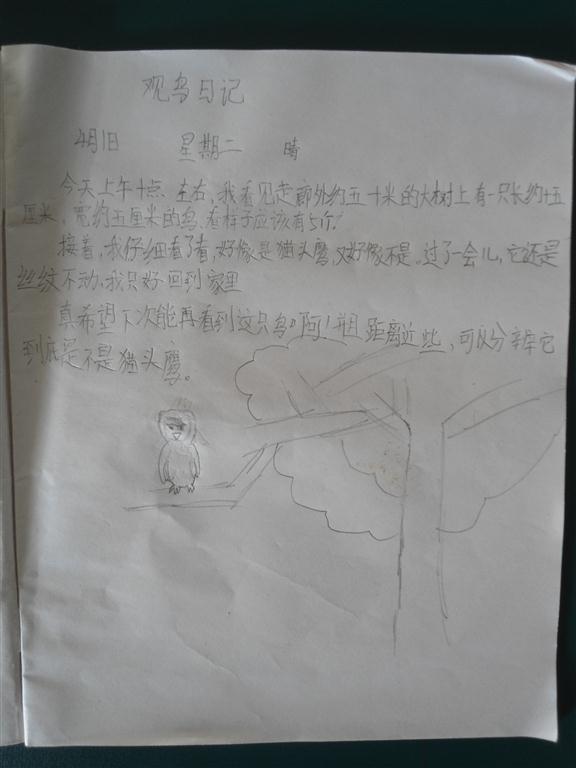 观鸟日记
4月1日 星期二 晴
今天上午十点左右,我看见走廊外约五十米的大树上有一只长约十五
厘米,宽约五厘米的鸟,看样子应该有5斤!
接着,我仔细看了看,好像是猫头鹰,又好像不是。过了一会儿,它还是
丝纹不动,我只好回到家里
真希望下次能再看到这只鸟啊!并且距离近些,可以分辛它
到底是不是猫头鹰。